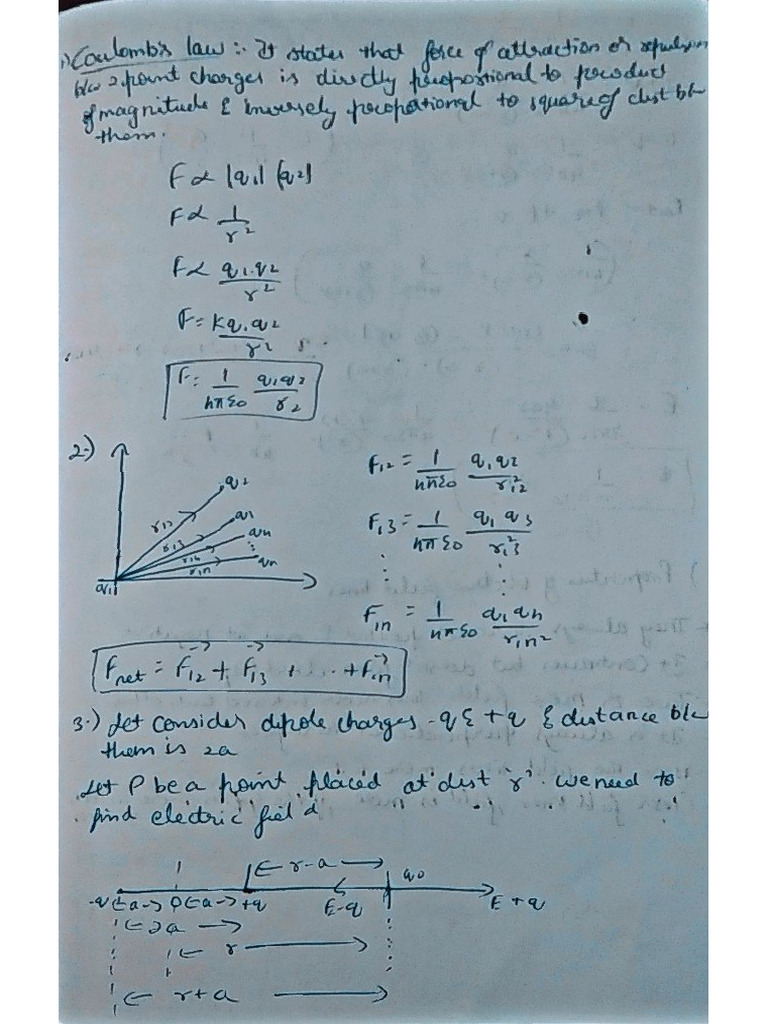 1) Coulomb's law :- It states that force of attraction or repulsion
b/w 2 point charges is directly proportional to product
of magnitude & inversely proportional to square of dist b/w
them.
F ∝ |q1| |q2|
F ∝ 1/r²
F ∝ q1.q2/r²
F = Kq1.q2/r²
F = 1/4πε0 q1q2/r2
2.)
q2
q3
q4
qn
r12
r13
r14
r1n
q1
F12 = 1/4πε0 q1q2/r12²
F13 = 1/4πε0 q1q3/r13²
F1n = 1/4πε0 q1qn/r1n²
Fnet = F12 + F13 + . . . + F1n
3.) Let consider dipole charges -q & +q & distance b/w
them is 2a
Let P be a point placed at dist 'r'. we need to
find electric field
r-a
q0
-q a O a +q E-q E+q
2a
r
r+a